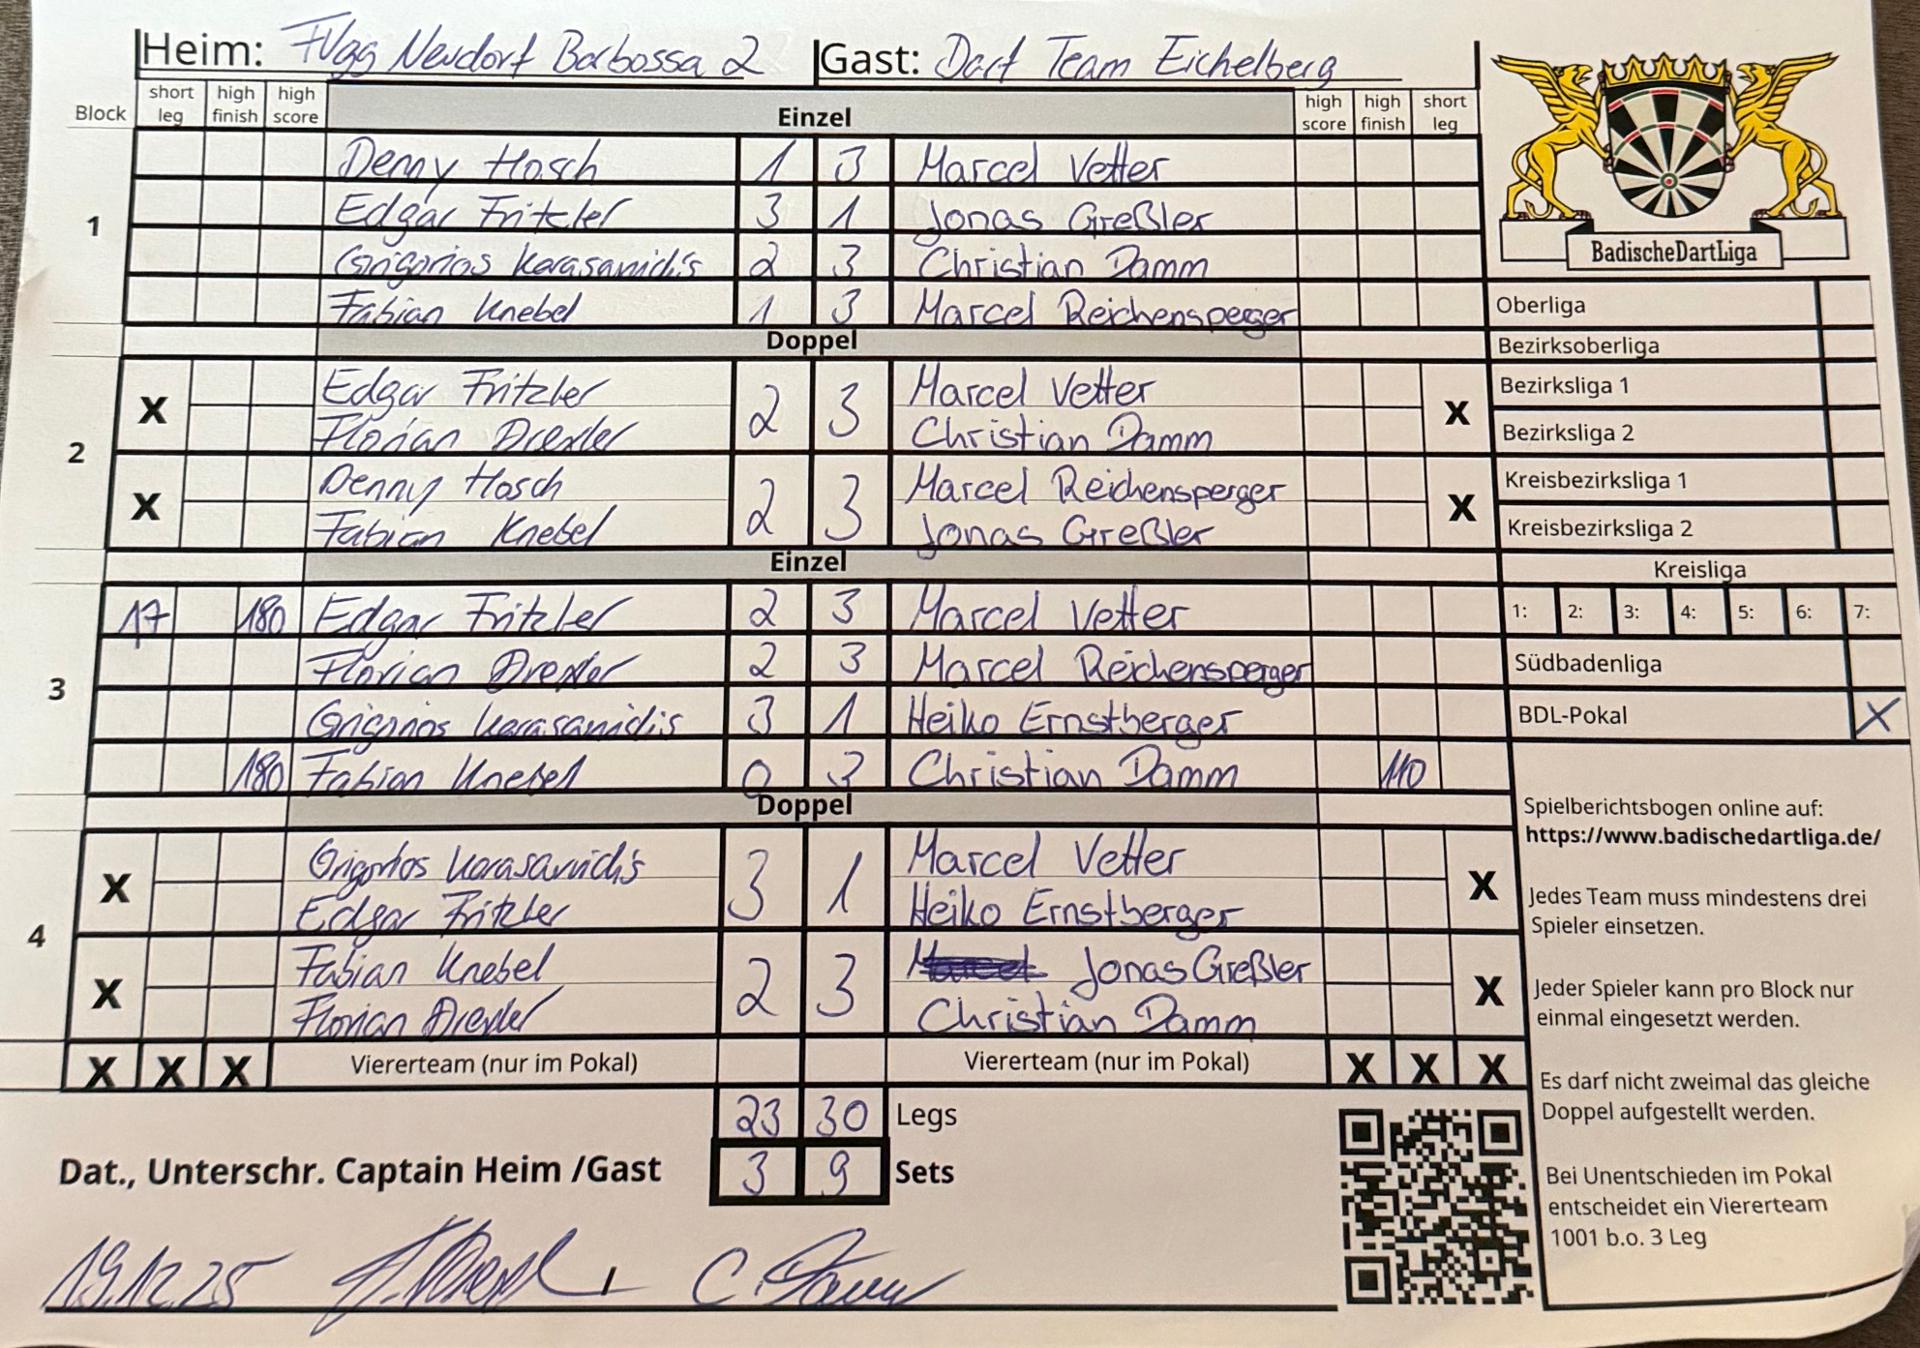 Heim: FVgg Neudorf Barbossa 2 Gast: Dart Team Eichelberg
Block short leg high finish high score Einzel high score high finish short leg
1
Denny Hosch 1 3 Marcel Vetter
Edgar Fritzler 3 1 Jonas Greßler
Grigorios Karasanidis 2 3 Christian Damm
Fabian Knebel 1 3 Marcel Reichensperger
Doppel
2
X Edgar Fritzler 2 3 Marcel Vetter X
Florian Drexler Christian Damm
X Denny Hosch 2 3 Marcel Reichensperger X
Fabian Knebel Jonas Greßler
Einzel
3
17 180 Edgar Fritzler 2 3 Marcel Vetter
Florian Drexler 2 3 Marcel Reichensperger
Grigorios Karasanidis 3 1 Heiko Ernstberger
180 Fabian Knebel 0 3 Christian Damm 110
Doppel
4
X Grigorios Karasanidis 3 1 Marcel Vetter X
Edgar Fritzler Heiko Ernstberger
X Fabian Knebel 2 3 Jonas Greßler X
Florian Drexler Christian Damm
X X X Viererteam (nur im Pokal) Viererteam (nur im Pokal) X X X
23 30 Legs
3 9 Sets
Dat., Unterschr. Captain Heim /Gast
19.12.25
C. Damm
BadischeDartLiga
Oberliga
Bezirksoberliga
Bezirksliga 1
Bezirksliga 2
Kreisbezirksliga 1
Kreisbezirksliga 2
Kreisliga
1: 2: 3: 4: 5: 6: 7:
Südbadenliga
BDL-Pokal X
Spielberichtsbogen online auf:
https://www.badischedartliga.de/
Jedes Team muss mindestens drei
Spieler einsetzen.
Jeder Spieler kann pro Block nur
einmal eingesetzt werden.
Es darf nicht zweimal das gleiche
Doppel aufgestellt werden.
Bei Unentschieden im Pokal
entscheidet ein Viererteam
1001 b.o. 3 Leg